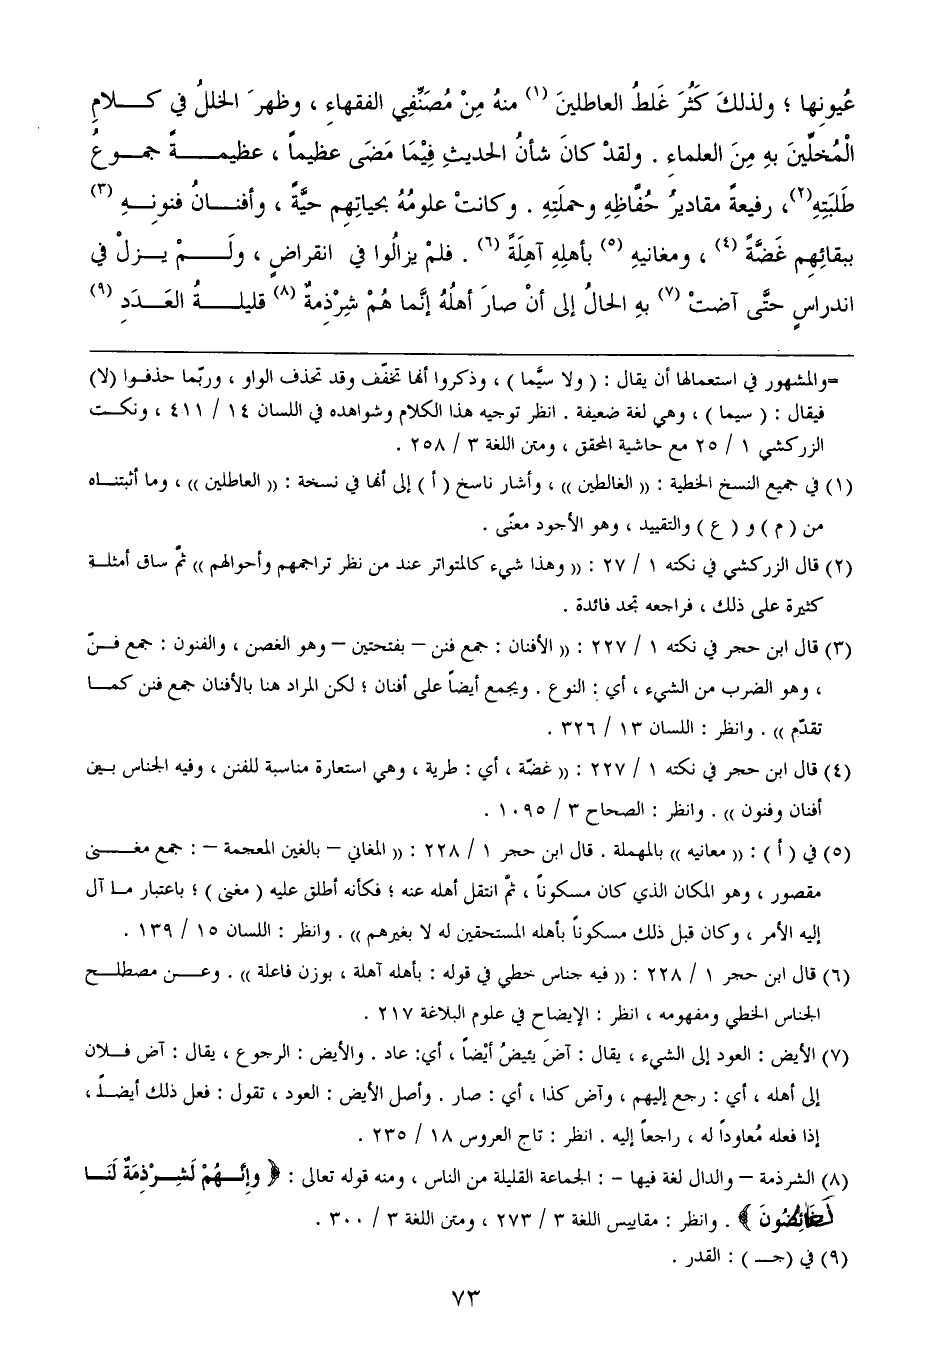 عُيونها ؛ ولذلكَ كَثُرَ غَلطُ العاطلينَ (١) منهُ مِنْ مُصَنِّفِي الفقهاءِ ، وظهرَ الخللُ في كـــلامِ
الْمُخلِّينَ بهِ مِنَ العلماءِ . ولقدْ كانَ شأنُ الحديثِ فِيْمَا مَضَى عظيماً ، عظيمـــــةً جمـــوعُ
طَلَبَتِهِ(٢)، رفيعةً مقاديرُ حُفَّاظِهِ وحملَتِهِ . وكانتْ علومُهُ بحياتِهم حيَّةً ، وأفنـــانُ فنونِـــهِ (٣)
ببقائِهم غَضَّةً (٤) ، ومغانيهِ (٥) بأهلِهِ آهِلَةً (٦) . فلمْ يزالُوا في انقراضٍ ، ولَـــــمْ يـــزلْ في
اندراسٍ حتَّى آضتْ (٧) بهِ الحالُ إلى أنْ صارَ أهلُهُ إنَّما هُمْ شِرْذمةٌ (٨) قليلـــةُ العَـدَدِ (٩)
=والمشهور في استعمالها أن يقال : ( ولا سيَّما ) ، وذكروا أنها تخفّف وقد تحذف الواو ، وربّما حذفـوا (لا)
فيقال : ( سيما ) ، وهي لغة ضعيفة . انظر توجيه هذا الكلام وشواهده في اللسان ١٤ / ٤١١ ، ونكـت
الزركشي ١ / ٢٥ مع حاشية المحقق ، ومتن اللغة ٣ / ٢٥٨ .
(١) في جميع النسخ الخطية : (( الغالطين )) ، وأشار ناسخ ( أ ) إلى أنها في نسخة : (( العاطلين )) ، وما أثبتنـــاه
من ( م ) و ( ع ) والتقييد ، وهو الأجود معنًى .
(٢) قال الزركشي في نكته ١ / ٢٧ : (( وهذا شيء كالمتواتر عند من نظر تراجمهم وأحوالهم )) ثمّ ساق أمثلـة
كثيرة على ذلك ، فراجعه تجد فائدة .
(٣) قال ابن حجر في نكته ١ / ٢٢٧ : (( الأفنان : جمع فنن – بفتحتين – وهو الغصن ، والفنون : جمع فـنّ
، وهو الضرب من الشيء ، أي : النوع . ويجمع أيضاً على أفنان ؛ لكن المراد هنا بالأفنان جمع فنن كمـا
تقدّم )) . وانظر : اللسان ١٣ / ٣٢٦ .
(٤) قال ابن حجر في نكته ١ / ٢٢٧ : (( غضّة ، أي : طرية ، وهي استعارة مناسبة للفنن ، وفيه الجناس بـين
أفنان وفنون )) . وانظر : الصحاح ٣ / ١٠٩٥ .
(٥) في ( أ ) : (( معانيه )) بالمهملة . قال ابن حجر ١ / ٢٢٨ : (( المغاني – بالغين المعجمة – : جمع مغـــنى
مقصور ، وهو المكان الذي كان مسكوناً ، ثمّ انتقل أهله عنه ؛ فكأنه أطلق عليه ( مغنى ) ؛ باعتبار مـا آل
إليه الأمر ، وكان قبل ذلك مسكوناً بأهله المستحقين له لا بغيرهم )) . وانظر : اللسان ١٥ / ١٣٩ .
(٦) قال ابن حجر ١ / ٢٢٨ : (( فيه جناس خطي في قوله : بأهله آهلة ، بوزن فاعلة )) . وعـــن مصطلـــح
الجناس الخطي ومفهومه ، انظر : الإيضاح في علوم البلاغة ٢١٧ .
(٧) الأيض : العود إلى الشيء ، يقال : آضَ يئيضُ أيْضاً ، أي: عاد . والأيض : الرجوع ، يقال : آض فـلان
إلى أهله ، أي : رجع إليهم ، وآض كذا ، أي : صار . وأصل الأيض : العود ، تقول : فعل ذلك أيضـاً ،
إذا فعله مُعاوداً له ، راجعاً إليه . انظر : تاج العروس ١٨ / ٢٣٥ .
(٨) الشرذمة – والدال لغة فيها – : الجماعة القليلة من الناس ، ومنه قوله تعالى : ﴿ وإِنَّـــهُمْ لَشِـرْذِمَةٌ لَنَـــا
لَغَائِظُونَ ﴾ . وانظر : مقاييس اللغة ٣ / ٢٧٣ ، ومتن اللغة ٣ / ٣٠٠ .
(٩) في (جـــ ) : القدر .
٧٣